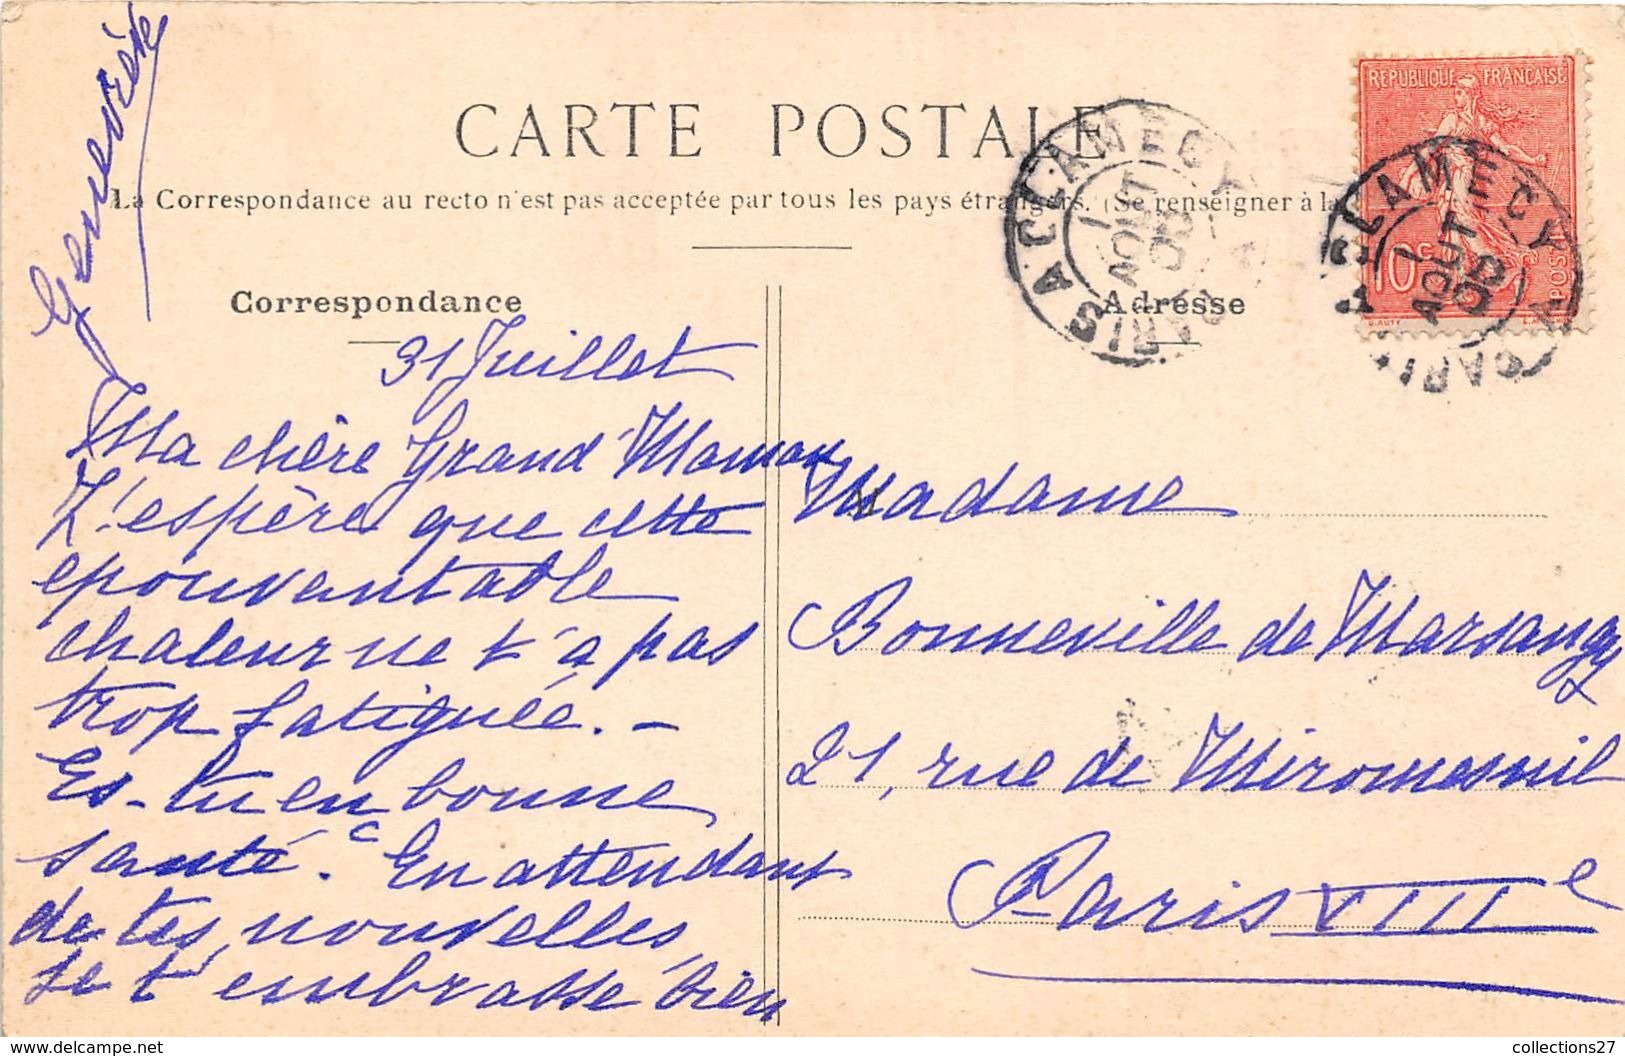 Geneviève
CARTE POSTALE
La Correspondance au recto n'est pas acceptée par tous les pays étrangers. (Se renseigner à la
Correspondance
31 Juillet
Ma chère Grand'Maman
J'espère que cette
epouvantable
chaleur ne t'a pas
trop fatiguée. –
Es-tu en bonne
santé? En attendant
de tes nouvelles,
je t'embrasse bien
Adresse
Madame
Bonneville de Marsangy
21, rue de Miromesnil
Paris VIIIe
REPUBLIQUE FRANÇAISE
10c
POSTES
PARIS A CLAMECY
1
AOUT
PARIS A CLAMECY
1
AOUT
collections27